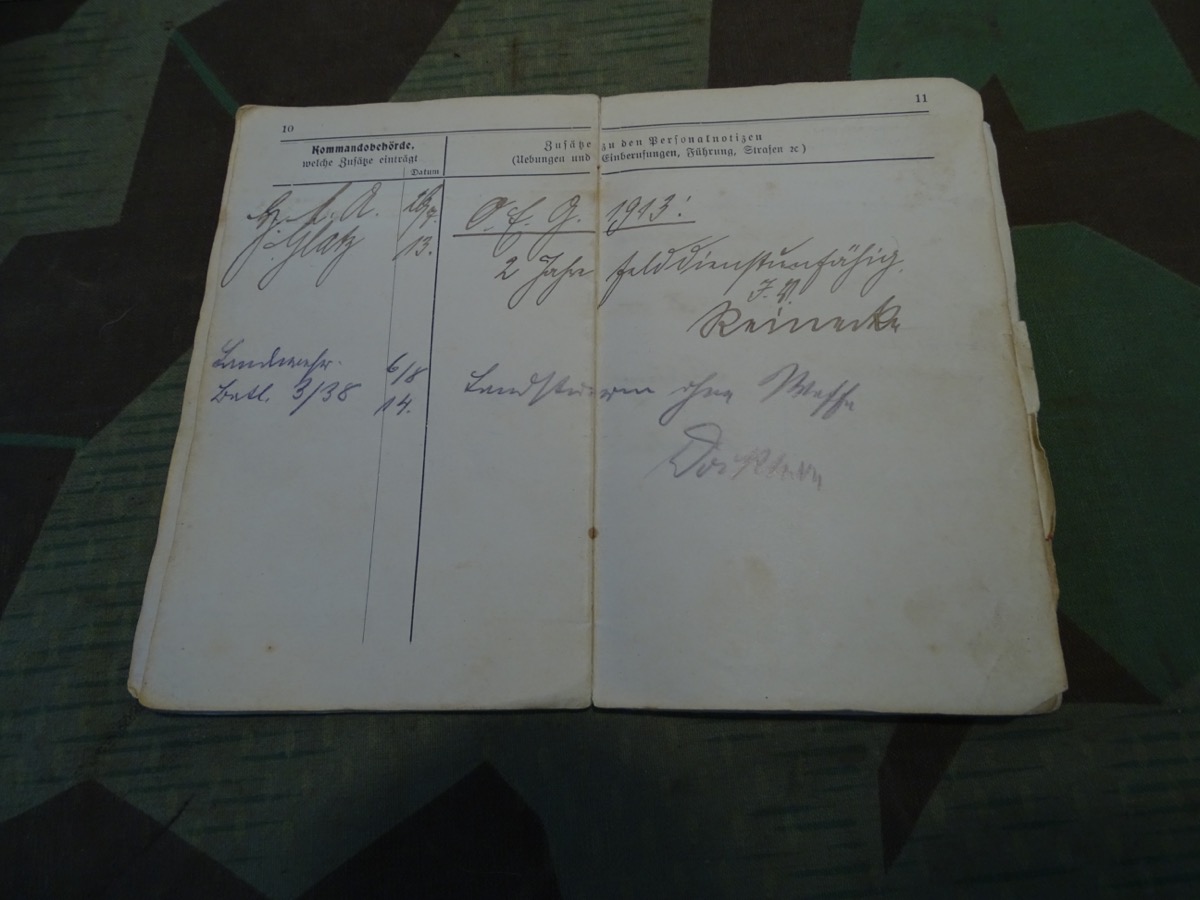 10
11
Kommandobehörde,
welche Zusätze einträgt
Datum
Zusätze zu den Personalnotizen
(Uebungen und Einberufungen, Führung, Strafen ꝛc)
26/4.
Glatz 13.
O. E. G. 1913:
2 Jahre felddienstunfähig.
J. V.
Reinecke
Landwehr. 6/8
Batl. 3/38 14.
Landsturm ohne Waffe